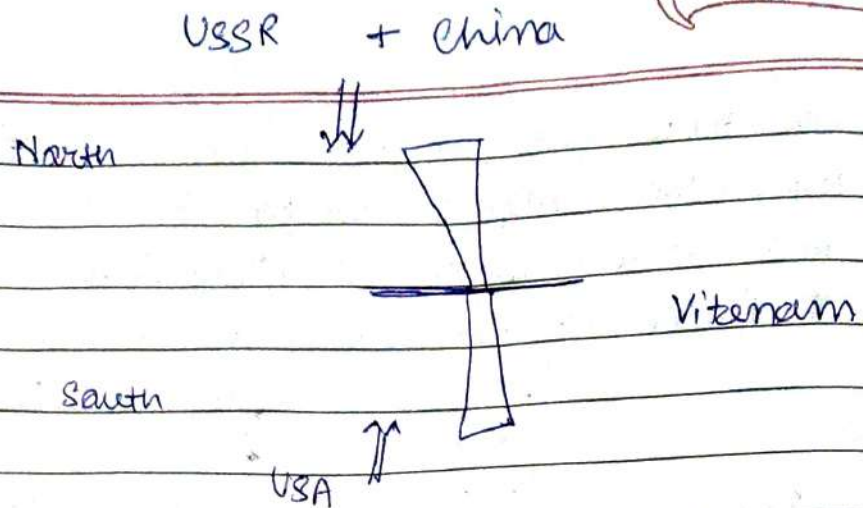 USSR + China
North
Vitenam
South
USA